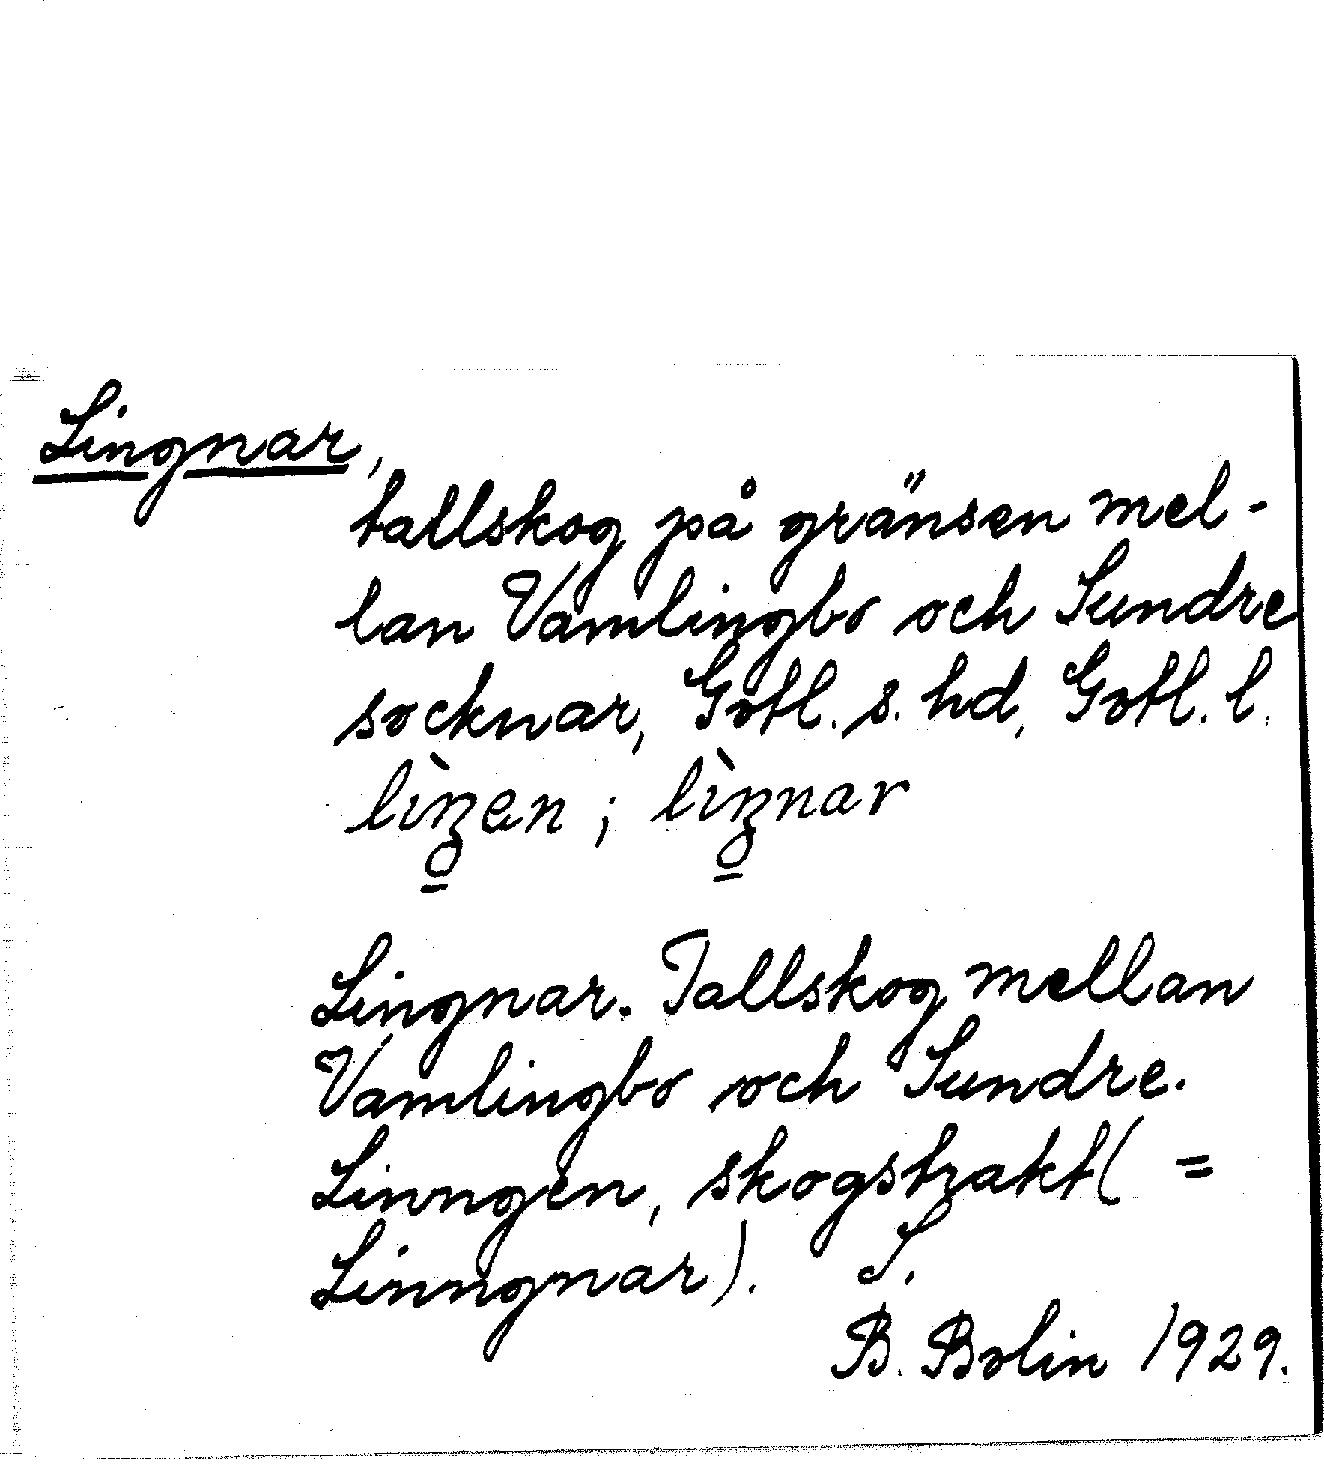 Lingnar,
tallskog på gränsen mel-
lan Vamlingbo och Sundre
socknar, Gotl. s. hd, Gotl. l.
Lingnar. Tallskog mellan
Vamlingbo och Sundre.
Linngen, skogstrakt( =
Linngnar). S.
B. Bolin 1929.